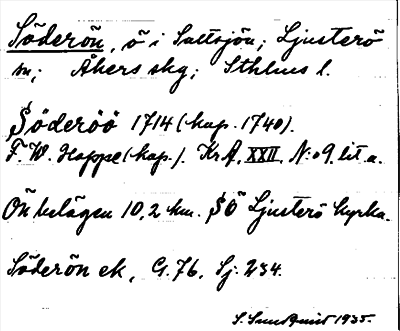 Söderön, ö i Saltsjön; Ljusterö
sn; Åkers skg; Sthlms l.
Söderöö 1714 (kap. 1740).
F. W. Hoppe (kap.). KrA, XXII, N:o 9 lit. a.
Ön belägen 10,2 km. SÖ Ljusterö kyrka.
Söderön ek, G. 76, Sj. 234.
S. Sundquist 1935.